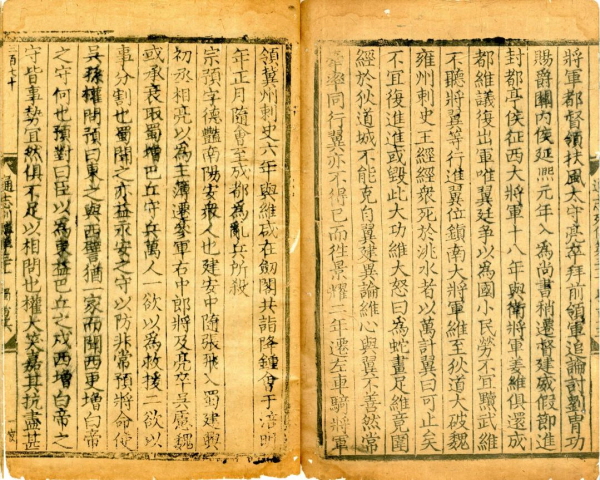 將軍都督領扶風太守亮卒拜前領軍追論討劉冑功
賜爵關內侯延熙元年入為尚書稍遷督建威假節進
封都亭侯征西大將軍十八年與衛將軍姜維俱還成
都維議復出軍唯翼廷爭以為國小民勞不宜黷武維
不聽將翼等行進翼位鎮南大將軍維至狄道大破魏
雍州刺史王經經衆死於洮水者以萬計翼曰可止矣
不宜復進進或毀此大功維大怒曰為蛇畫足維竟圍
經於狄道城不能克自翼建異論維心與翼不善然常
牽率同行翼亦不得已而往景耀二年遷左車騎將軍
領冀州刺史六年與維咸在劍閣共詣降鍾會于涪明
年正月隨會至成都為亂兵所殺
宗預字德豔南陽安衆人也建安中隨張飛入蜀建興
初丞相亮以為主簿遷參軍右中郎將及亮卒吳慮魏
或承衰取蜀增巴丘守兵萬人一欲以為救援二欲以
事分割也蜀聞之亦益永安之守以防非常預將命使
吳孫權問預曰東之與西譬猶一家而聞西更增白帝
之守何也預對曰臣以為東益巴丘之戍西增白帝之
守皆事勢宜然俱不足以相問也權大笑嘉其抗盡甚
百七十
通志